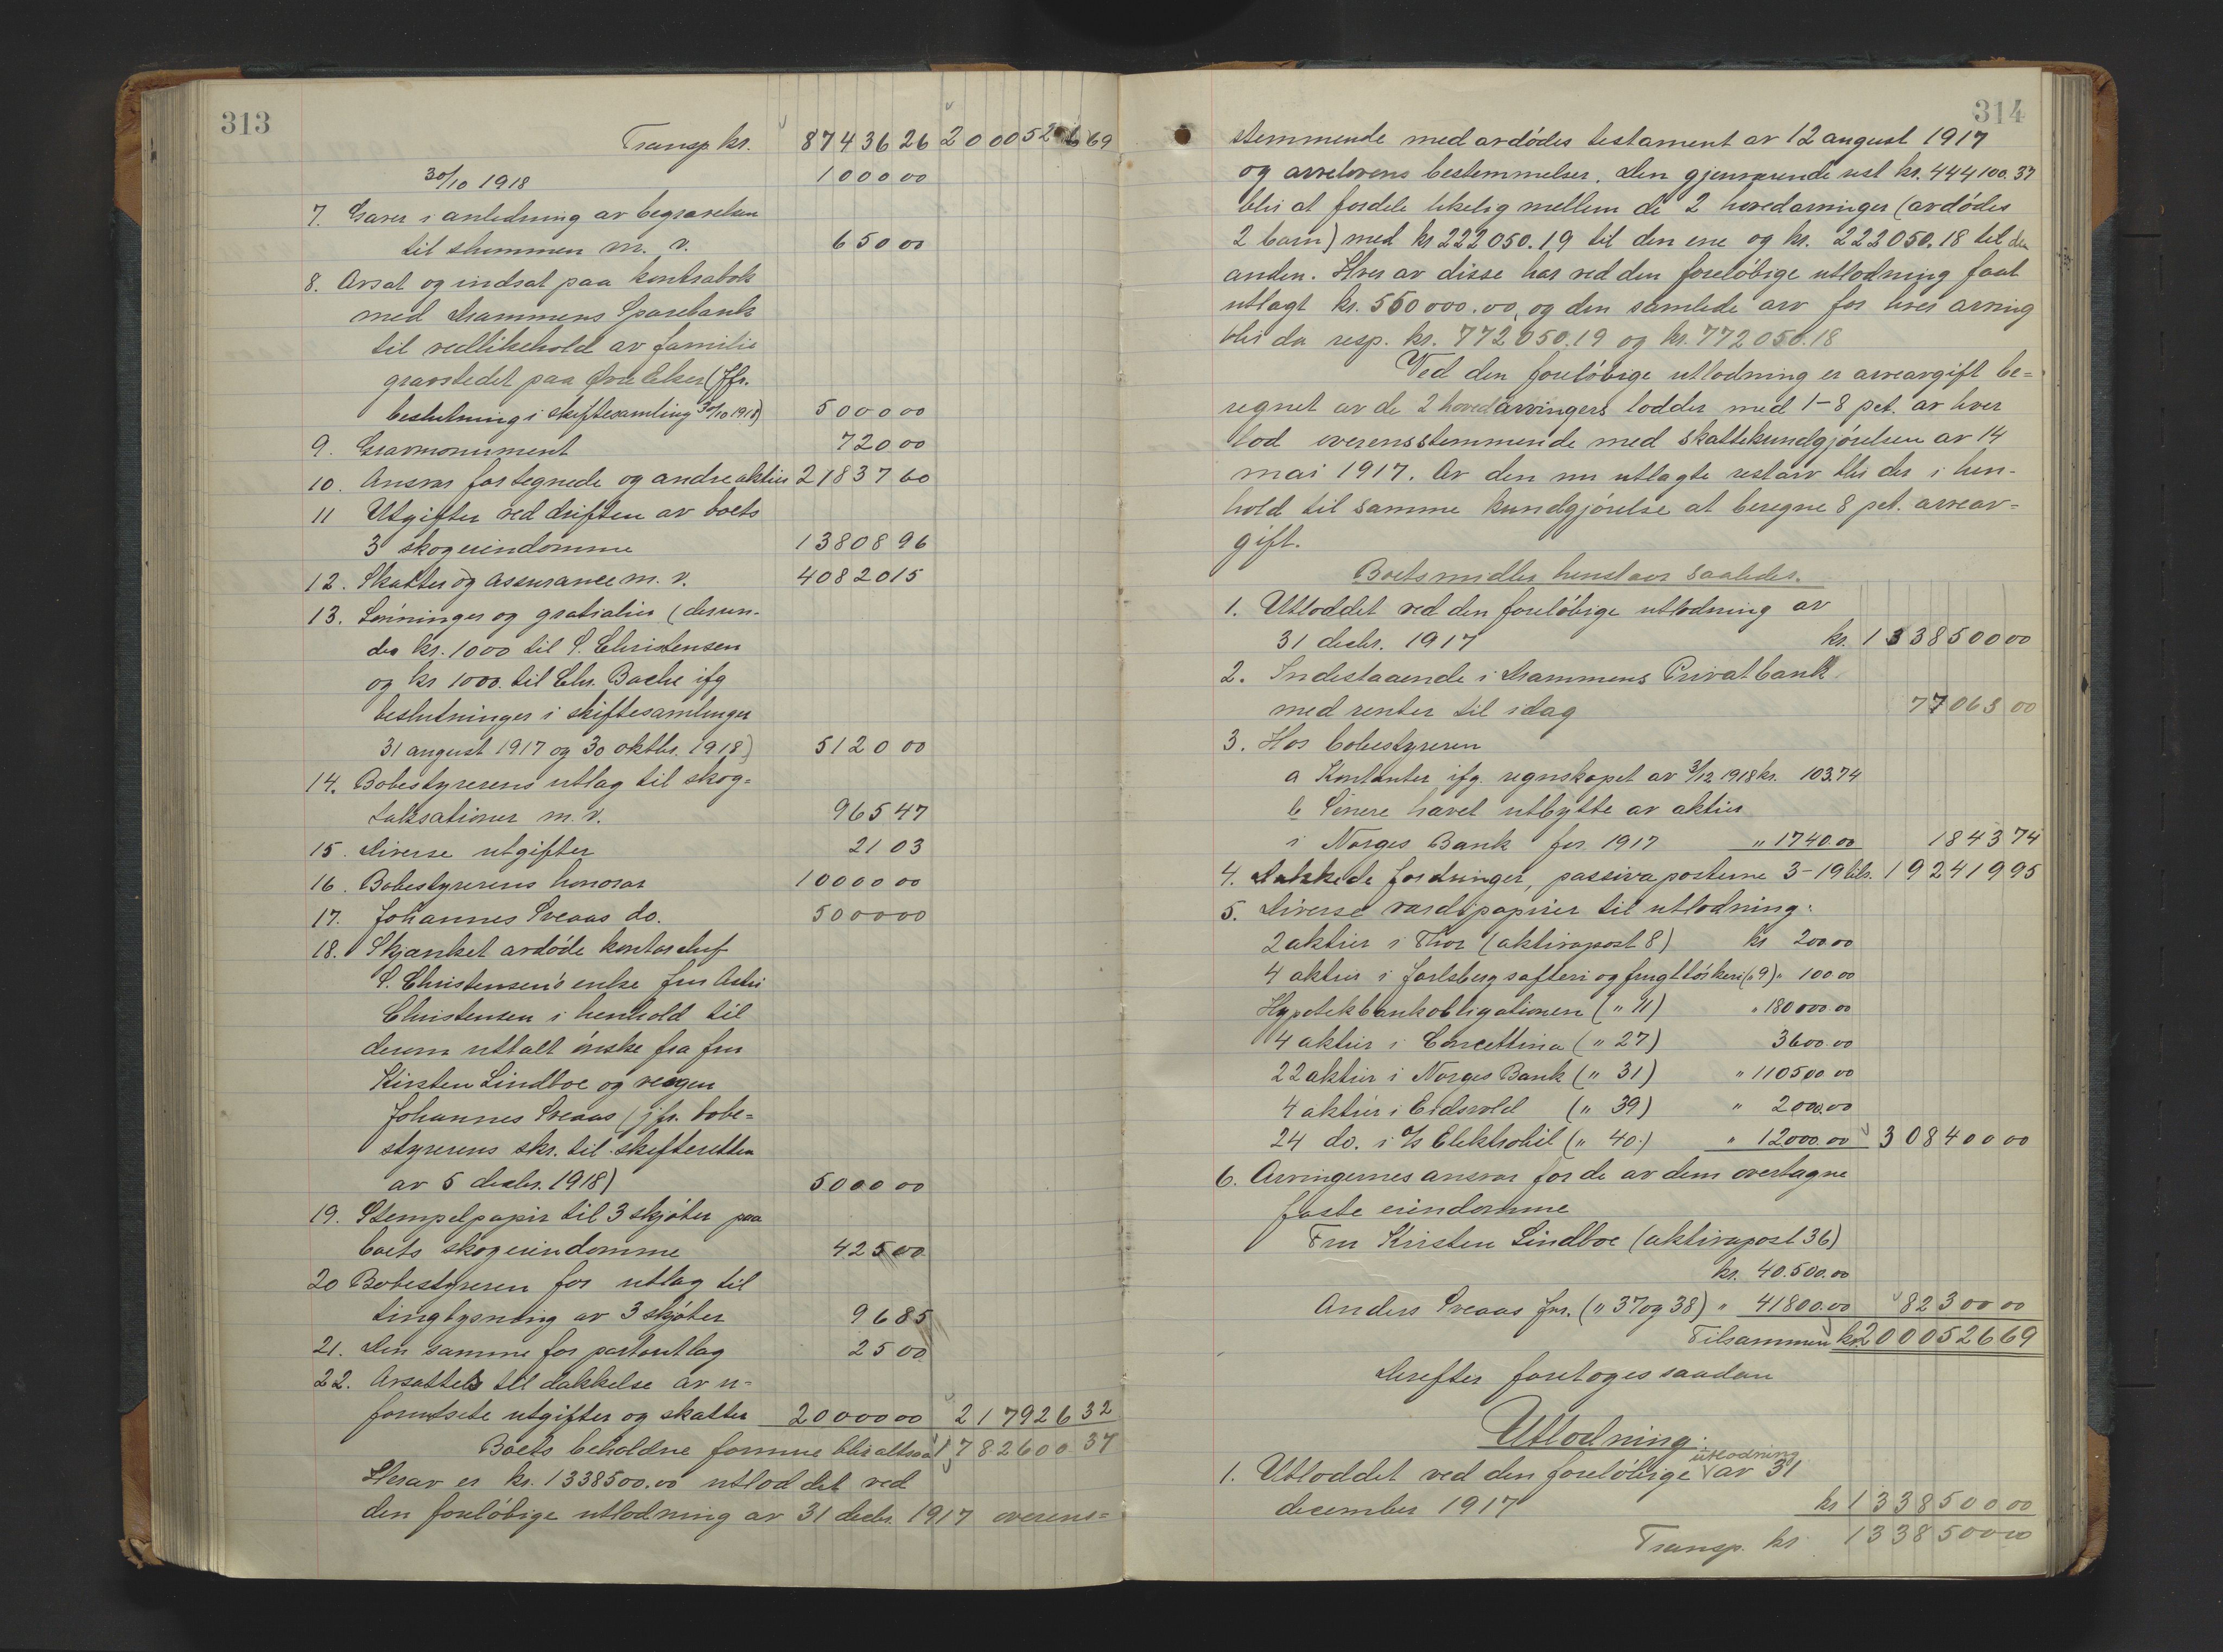 313
Transp. kr. 87436 26 2000526 69
30/10 1918 1000 00
7. Gaver i anledning av begravelsen
til stemmen m. v. 650 00
8. Avsat og indsat paa kontrabok
med Drammens Sparebank
til vedlikehold av familie
gravstedet paa Øvre Eker (Jfr.
beslutning i skiftesamling 30/10 1918) 5000 00
9. Gravmonument 720 00
10. Ansvar for tegnede og andre aktier 21837 60
11 Utgifter ved driften av boets
3 skogeiendomme 13808 96
12. Skatter og assurance m. v. 40820 15
13. Lønninger og gratialier (derun-
der kr. 1000 til S. Christensen
og kr 1000. til Chr. Bache ifg
beslutninger i skiftesamlinger
31 august 1917 og 30 oktbr. 1918) 5120 00
14. Bobestyrerens utlag til skog-
taksationer m. v. 965 47
15. Diverse utgifter 21 03
16. Bobestyrerens honorar 10000 00
17. Johannes Sveaas do. 5000 00
18. Skjænket avdøde kontorchef
S. Christensen's enke fru
Christensen i henhold til
derom uttalt ønske fra fru
Kirsten Lindboe og
Johannes Sveaas (jfr. bobe-
styrerens skr. til skifteretten
av 5 decbr. 1918) 5000 00
19. Stempelpapir til 3 skjøter paa
boets skogeiendomme 425 00
20 Bobestyreren for utlag til
tinglysning av 3 skjøter 96 85
21. Den samme for portoutlag 25 00
22. Avsættes til dækkelse av u-
forutsete utgifter og skatter 20000 00 217926 32
Boets beholdne formue blir altsaa 1782600 37
Herav er kr. 1338500.00 utloddet ved
den foreløbige utlodning av 31 decbr. 1917 overens-
314
stemmende med avdødes testament av 12 august 1917
og arvelovens bestemmelser. Den gjenværende rest kr. 444100.37
blir at fordele likelig mellem de 2 hovedarvinger (avdødes
2 barn) med kr 222050.19 til den ene og kr. 222050.18 til den
anden. Hver av disse har ved den foreløbige utlodning faat
utlagt kr. 550000.00, og den samlede arv for hver arving
blir da resp. kr. 772050.19 og kr. 772050.18
Ved den foreløbige utlodning er arveavgift be-
regnet av de 2 hovedarvingers lodder med 1-8 pct. av hver
lod overensstemmende med skattekundgjørelsen av 14
mai 1917. Av den nu utlagte restarv blir der i hen-
hold til samme kundgjørelse at beregne 8 pct. arveav-
gift.
Boets midler henstaar saaledes.
1. Utloddet ved den foreløbige utlodning av
31 decbr. 1917 kr. 1338500 00
2. Indestaaende i Drammens Privatbank
med renter til idag 77063 00
3. Hos bobestyreren
a Kontanter ifg. regnskapet av 3/12 1918 kr. 103.74
b Senere hævet utbytte av aktier
i Norges Bank for 1917 " 1740.00 1843 74
4. Dækkede fordringer, passivaposterne 3-19 bilr. 192419 95
5. Diverse værdipapirer til utlodning:
2 aktier i Thor (aktivapost 8) kr 200.00
4 aktier i Jarlsberg safteri og frugttørkeri (" 9) " 100 00
Hypotekbankobligationen (" 11) " 180000.00
4 aktier i Concettina (" 27) 3600.00
22 aktier i Norges Bank (" 31) " 110500 00
4 aktier i Eidsvold (" 39) " 2000.00
24 do. i A/s Elektrokil (" 40.) " 12000.00 308400 00
6. Arvingernes ansvar for de av dem overtagne
faste eiendomme
Fru Kirsten Lindboe (aktivapost 36)
kr. 40.500.00
Anders Sveaas jnr. (" 37 og 38) " 41800.00 82300 00
Tilsammen kr. 2000526 69
Derefter foretoges saadan
Utlodning.
1. Utloddet ved den foreløbige utlodning av 31
december 1917 kr 1338500 00
Transp. kr 1338500 00